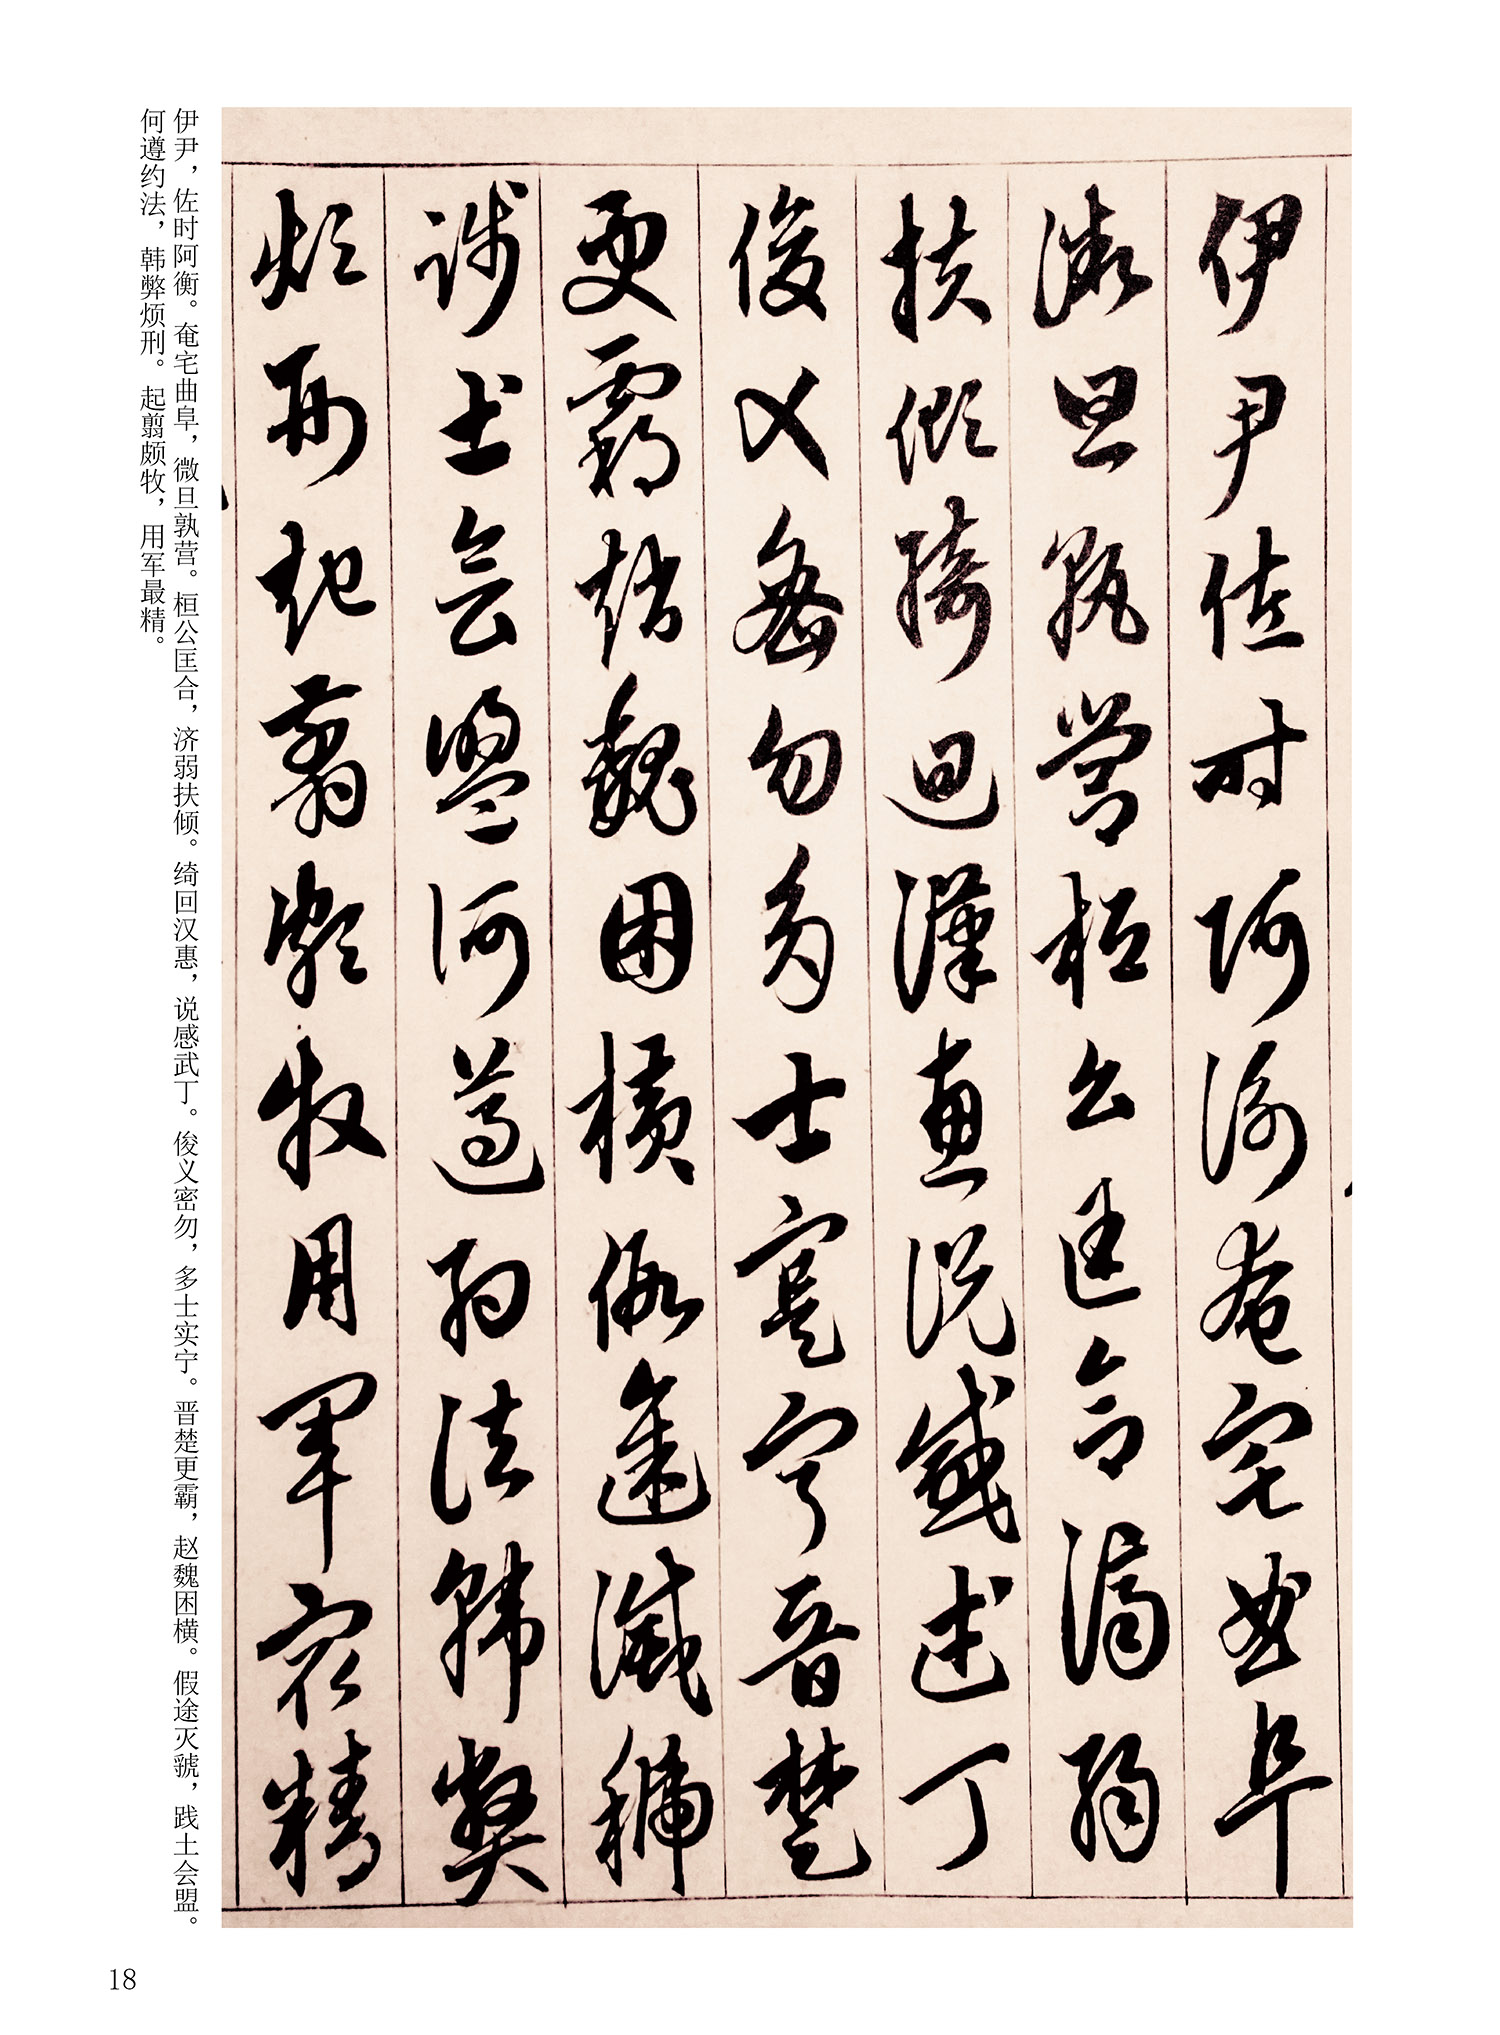 伊尹佐時阿衡奄宅曲阜
微旦孰營桓公匡合濟弱
扶傾綺迴漢惠說感武丁
俊乂密勿多士寔寧晉楚
更霸趙魏困橫假途滅虢
踐土會盟何遵約法韓弊
煩刑起翦頗牧用軍最精
伊尹，佐时阿衡。奄宅曲阜，微旦孰营。桓公匡合，济弱扶倾。绮回汉惠，说感武丁。俊义密勿，多士实宁。晋楚更霸，赵魏困横。假途灭虢，践土会盟。
何遵约法，韩弊烦刑。起翦颇牧，用军最精。
18